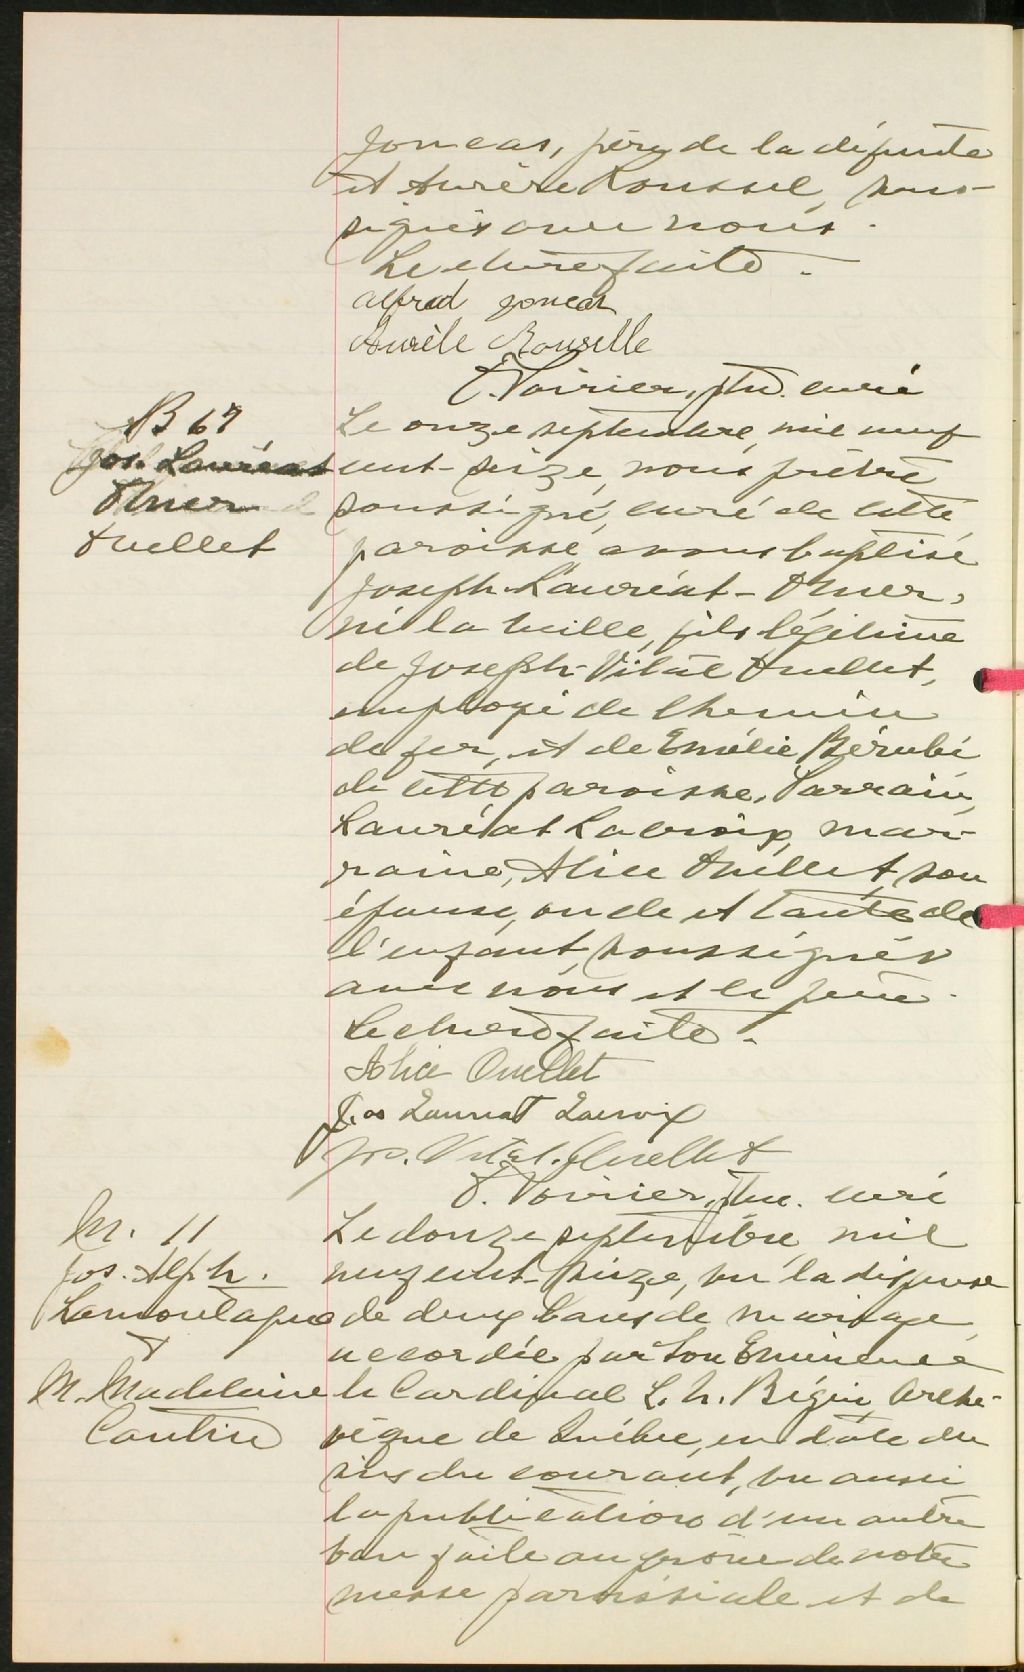 Joncas, père de la défunte
et Aurèle Roussel, sous-
signés avec nous.
Lecture faite.
alfred Joncas
Aurèle Rousselle
Poirier, ptre. curé
B 67
Jos. Lauréat
Omer
Ouellet
Le onze septembre, mil neuf
cent-seize, nous prêtre
soussigné, curé de cette
paroisse avons baptisé
Joseph-Lauréat-Omer,
né la veille, fils légitime
de Joseph-Vital Ouellet,
employé de chemin
de fer, et de Emélie Bérubé
de cette paroisse. Parrain,
Lauréat Lacroix, mar-
raine, Alice Ouellet, son
épouse, oncle et tante de
l'enfant, soussignés
avec nous et le père.
Lecture faite.
Alice Ouellet
Jos Lauréat Lacroix
Jos. Vital Ouellet
Poirier, ptre. curé
M. 11
Jos. Alph.
Lamontagne
&
M. Madeleine
Cantin
Le douze septembre, mil
neuf cent-seize, vu la dispense
de deux bans de mariage
accordée par Son Eminence
le Cardinal L. N. Bégin, Arche-
vêque de Québec, en date du
six du courant, vu aussi
la publication d'un autre
ban faite au prône de notre
messe paroissiale et de